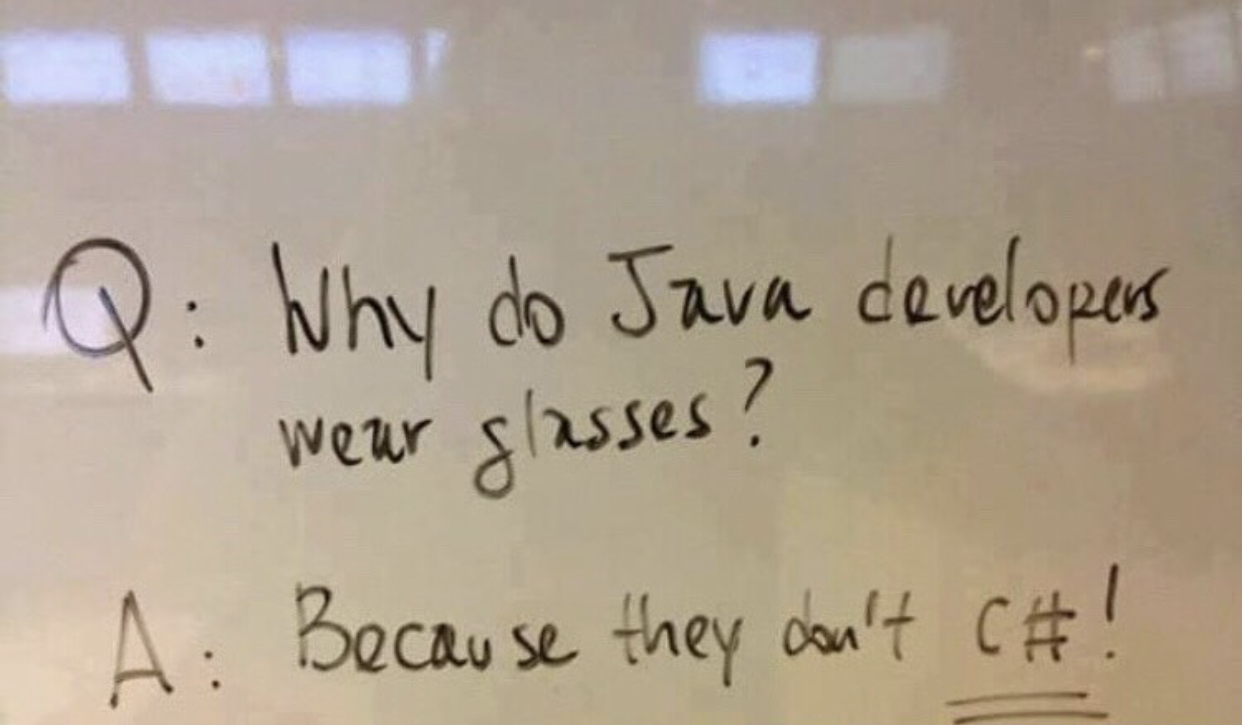 Q: Why do Java developers
wear glasses?
A: Because they don't C#!